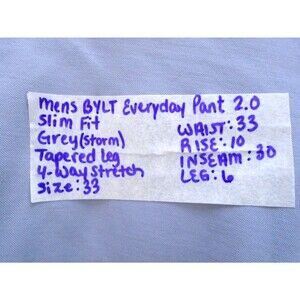 mens BYLT Everyday Pant 2.0
Slim Fit
Grey(storm)
Tapered Leg
4-Way Stretch
Size: 33
WAIST: 33
RISE: 10
INSEAM: 30
LEG: 6